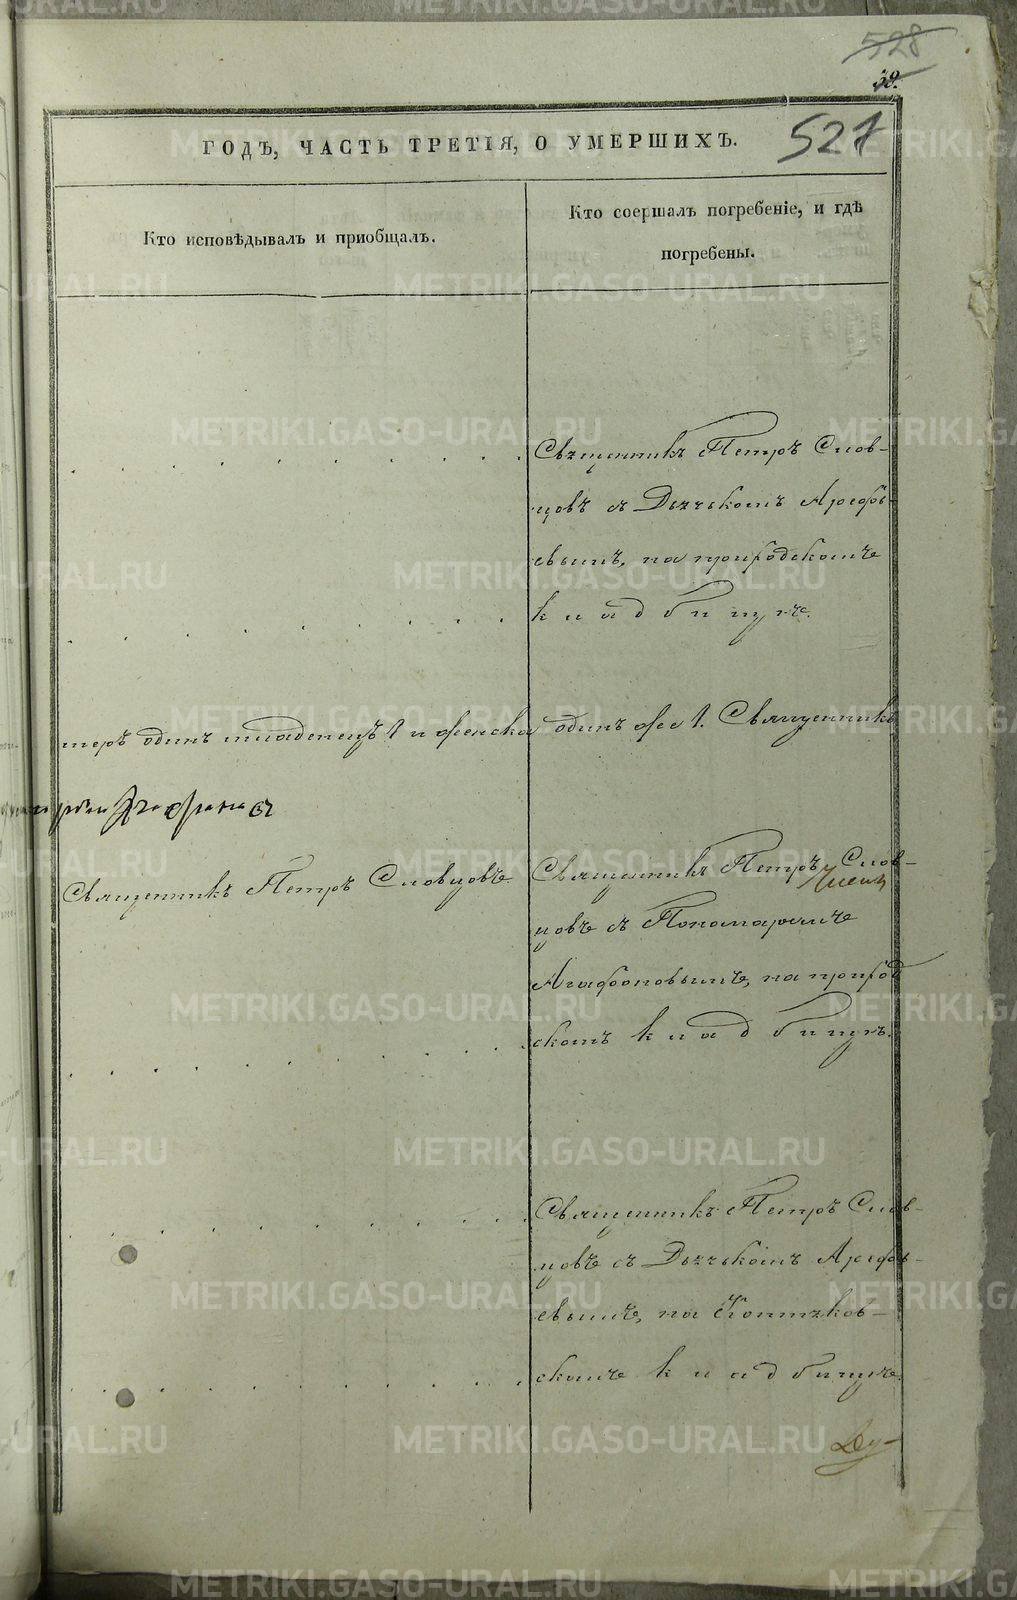 528
527
ГОДЪ, ЧАСТЬ ТРЕТІЯ, О УМЕРШИХЪ.
Кто исповѣдывалъ и приобщалъ.
Кто соершалъ погребеніе, и гдѣ
погребены.
Священникъ Петръ Слов-
цовъ съ Дьячькомъ Арефь-
евымъ, на приходскомъ
кладбищѣ.
меръ одинъ младенецъ 1 и женска одинъ же 1. Священникъ
Агафоновъ
Священникъ Петръ Словцовъ.
Священникъ Петръ Слов-
цовъ съ Пономаремъ
Агафоновымъ, на приход
скомъ кладбищѣ.
Священникъ Петръ Слов-
цовъ съ Дьячькомъ Арефь-
евымъ, на
скомъ кладбищѣ.
METRIKI.GASO-URAL.RU